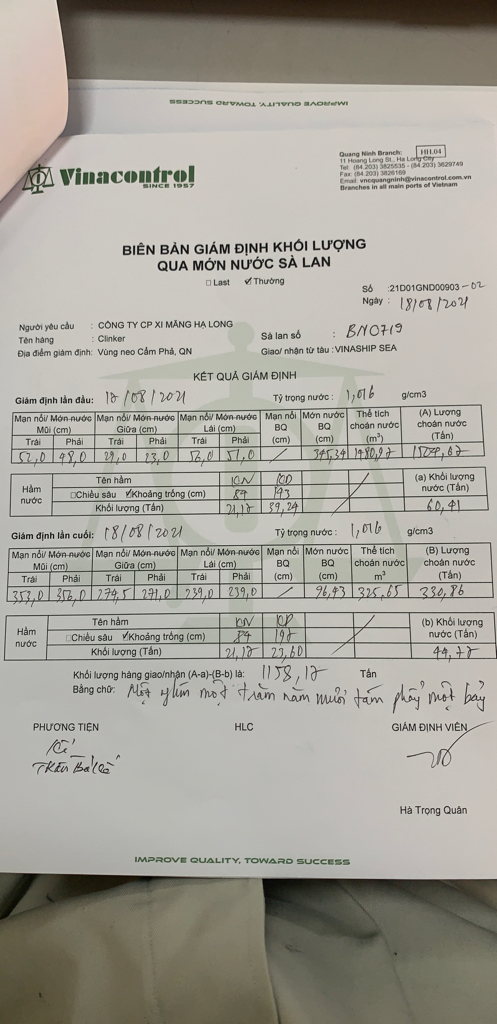 IMPROVE QUALITY, TOWARD SUCCESS
Vinacontrol
SINCE 1957
Quang Ninh Branch: HH.04
11 Hoang Long St., Ha Long City
Tel: (84.203) 3825535 - (84.203) 3629749
Fax: (84.203) 3826169
Email: vncquangninh@vinacontrol.com.vn
Branches in all main ports of Vietnam
BIÊN BẢN GIÁM ĐỊNH KHỐI LƯỢNG
QUA MỚN NƯỚC SÀ LAN
Last Thường
Số :21D01GND00903 -02
Ngày : 18/08/2021
Người yêu cầu : CÔNG TY CP XI MĂNG HẠ LONG
Tên hàng : Clinker
Sà lan số : BN0719
Địa điểm giám định: Vùng neo Cẩm Phả, QN
Giao/ nhận từ tàu : VINASHIP SEA
KẾT QUẢ GIÁM ĐỊNH
Giám định lần đầu: 17/08/2021 Tỷ trọng nước : 1,016 g/cm3
Mạn nổi/ Món nước Mũi (cm) Mạn nổi/ Món nước Giữa (cm) Mạn nổi/ Món nước Lái (cm) Mạn nổi BQ (cm) Món nước BQ (cm) Thể tích choán nước (m³) (A) Lượng choán nước (Tấn)
Trái Phải Trái Phải Trái Phải
52,0 48,0 23,0 51,0 345,34
Hầm nước
Tên hầm KN KD (a) Khối lượng nước (Tấn)
Chiều sâu Khoảng trống (cm) 84 193
Khối lượng (Tấn) 21,17 39,24 60,41
Giám định lần cuối: 18/08/2021 Tỷ trọng nước : 1,016 g/cm3
Mạn nổi/ Món nước Mũi (cm) Mạn nổi/ Món nước Giữa (cm) Mạn nổi/ Món nước Lái (cm) Mạn nổi BQ (cm) Món nước BQ (cm) Thể tích choán nước m³ (B) Lượng choán nước (Tấn)
Trái Phải Trái Phải Trái Phải
353,0 356,0 274,5 271,0 239,0 239,0 96,43 325,65 330,86
Hầm nước
Tên hầm KN KD (b) Khối lượng nước (Tấn)
Chiều sâu Khoảng trống (cm) 84 197
Khối lượng (Tấn) 21,17 23,60 44,77
Khối lượng hàng giao/nhận (A-a)-(B-b) là: 1158,17 Tấn
Bằng chữ: Một ghìn một trăm năm mươi tám phẩy một bảy
PHƯƠNG TIỆN HLC GIÁM ĐỊNH VIÊN
Hà Trọng Quân
IMPROVE QUALITY, TOWARD SUCCESS